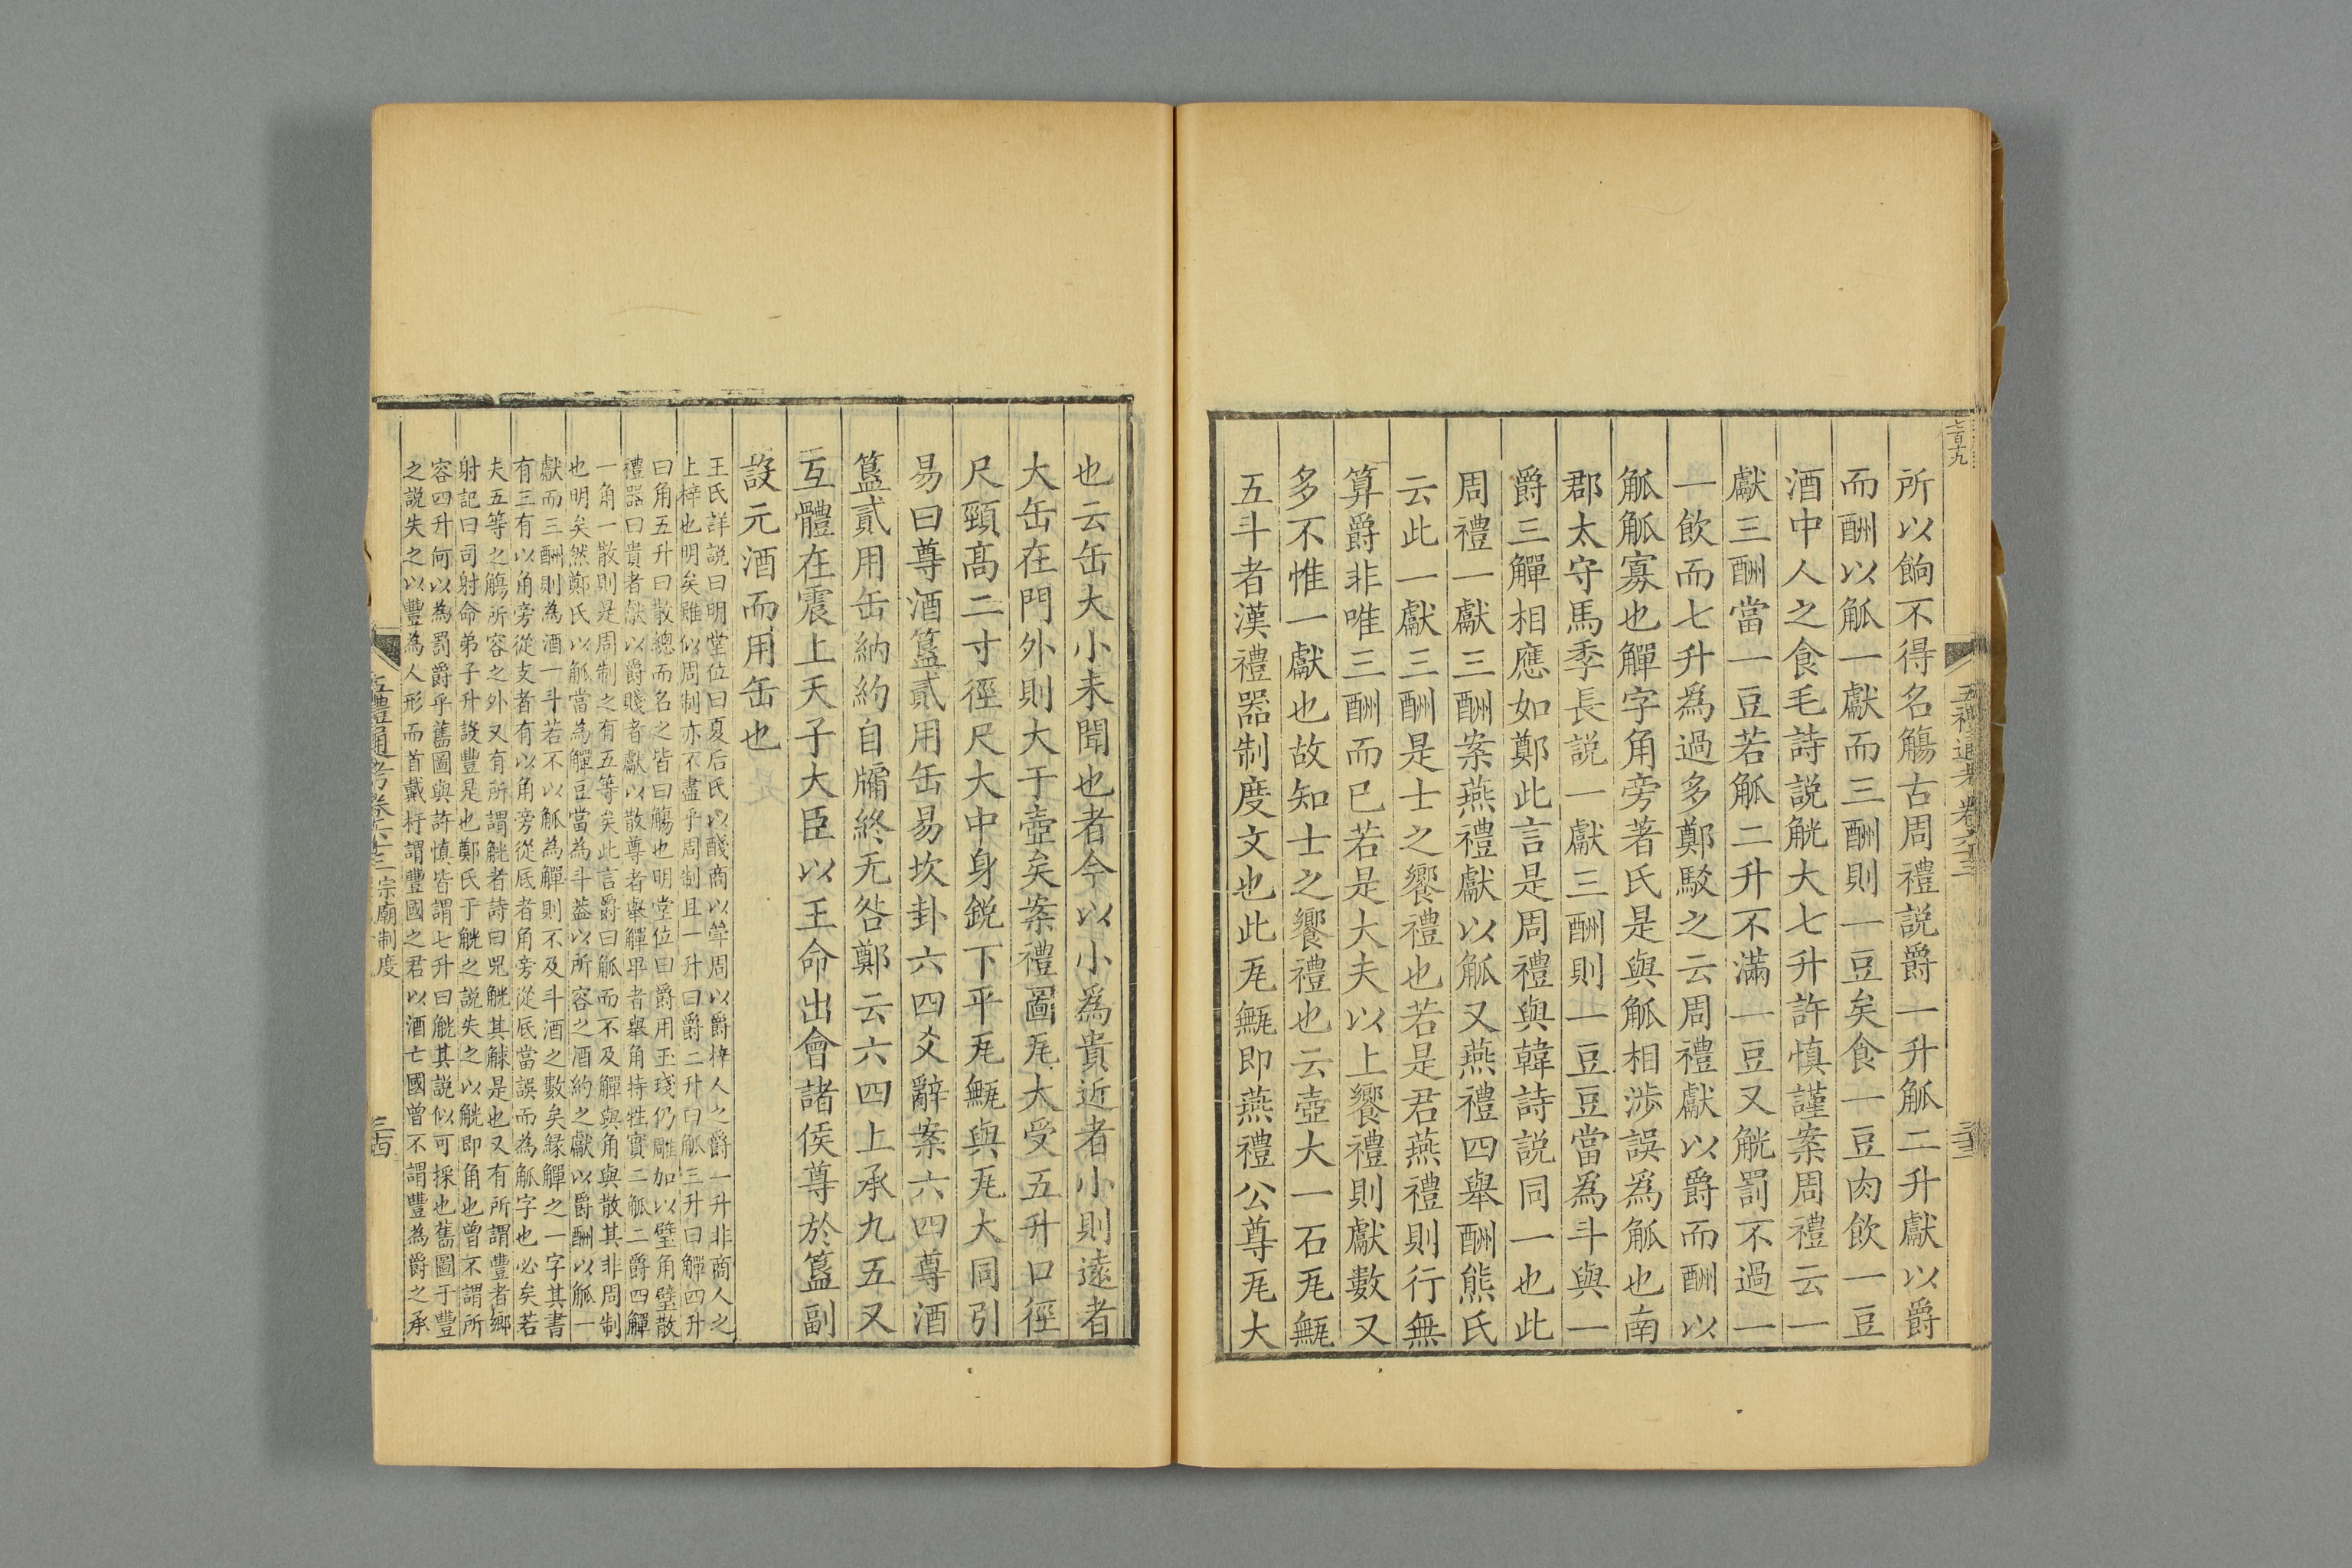 七百九
五禮通考卷六十三
所以餉不得名觴古周禮説爵一升觚二升獻以爵
而酬以觚一獻而三酬則一豆矣食一豆肉飲一豆
酒中人之食毛詩説觥大七升許慎謹案周禮云一
獻三酬當一豆若觚二升不滿一豆又觥罰不過一
一飲而七升爲過多鄭駁之云周禮獻以爵而酬以
觚觚寡也觶字角旁著氏是與觚相渉誤爲觚也南
郡太守馬季長説一獻三酬則一豆豆當爲斗與一
爵三觶相應如鄭此言是周禮與韓詩説同一也此
周禮一獻三酬案燕禮獻以觚又燕禮四舉酬熊氏
云此一獻三酬是士之饗禮也若是君燕禮則行無
算爵非唯三酬而已若是大夫以上饗禮則獻數又
多不惟一獻也故知士之饗禮也云壺大一石瓦甒
五斗者漢禮器制度文也此瓦甒即燕禮公尊瓦大
也云缶大小未聞也者今以小爲貴近者小則遠者
大缶在門外則大于壺矣案禮圖瓦大受五升口徑
尺頸高二寸徑尺大中身鋭下平瓦甒與瓦大同引
易曰尊酒簋貳用缶易坎卦六四爻辭案六四尊酒
簋貳用缶納約自牖終无咎鄭云六四上承九五又
互體在震上天子大臣以王命出會諸侯尊於簋副
設元酒而用缶也
王氏詳説曰明堂位曰夏后氏以醆商以斝周以爵梓人之爵一升非商人之
上梓也明矣雖似周制亦不盡乎周制且一升曰爵二升曰觚三升曰觶四升
曰角五升曰散總而名之皆曰觴也明堂位曰爵用玉琖仍雕加以璧角璧散
禮器曰貴者獻以爵賤者獻以散尊者舉觶卑者舉角特牲實二觚二爵四觶
一角一散則是周制之有五等矣此言爵曰觚而不及觶與角與散其非周制
也明矣然鄭氏以觚當為觶豆當為斗葢以所容之酒約之獻以爵酬以觚一
獻而三酬則為酒一斗若不以觚為觶則不及斗酒之數矣緣觶之一字其書
有三有以角旁從支者有以角旁從厎者角旁從厎當誤而為觚字也必矣若
夫五等之觴所容之外又有所謂觥者詩曰兕觥其觩是也又有所謂豐者鄉
射記曰司射命弟子升設豐是也鄭氏于觥之説失之以觥即角也曾不謂所
容四升何以為罰爵乎舊圖與許慎皆謂七升曰觥其説似可採也舊圖于豐
之説失之以豐為人形而首戴杅謂豐國之君以酒亡國曾不謂豐為爵之承
五禮通考卷六十三 宗廟制度
三十四